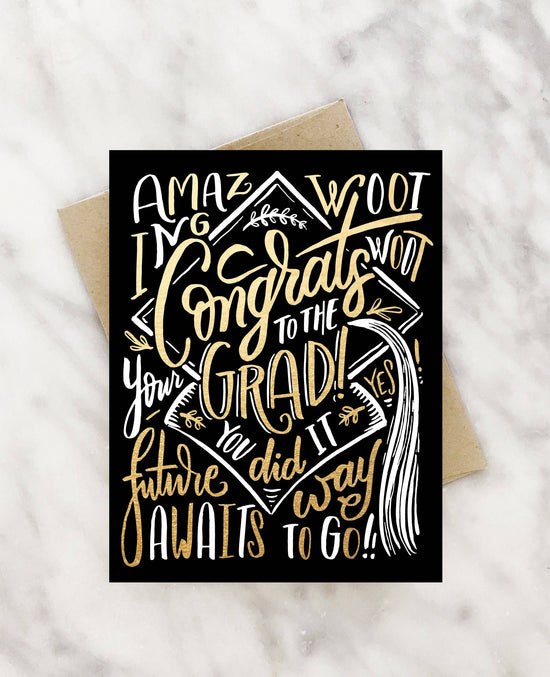 AMAZ WOOT
ING WOOT
Congrats
TO THE
GRAD!
YES!
Your
YOU did IT
future way
AWAITS TO GO!!